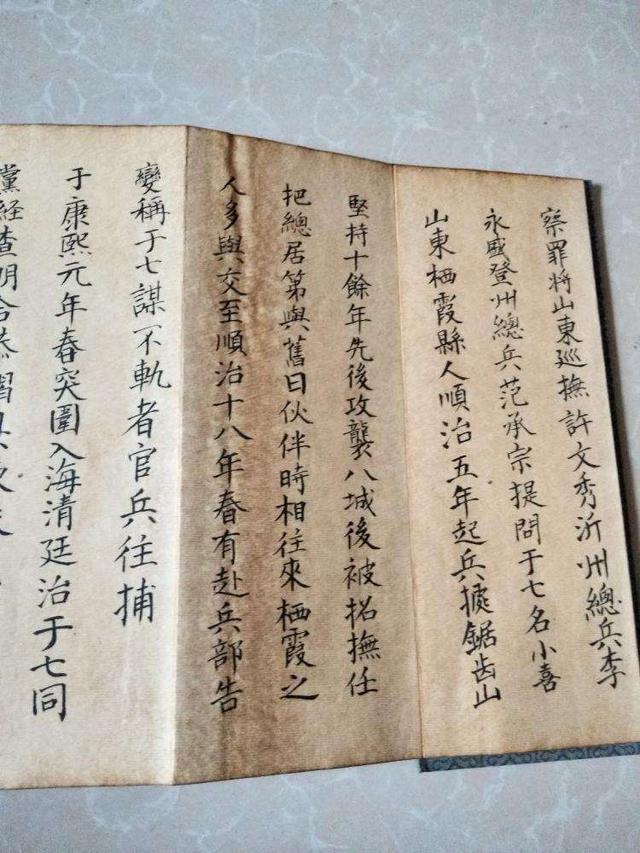 察罪將山東廵撫許文秀沂州總兵李
永盛登州總兵范承宗提問于七名小喜
山東栖霞縣人順治五年起兵據鋸齿山
堅持十餘年先後攻襲八城後被招撫任
把總居第與舊日伙伴時相往來栖霞之
人多與交至順治十八年春有赴兵部告
變稱于七謀不軌者官兵往捕
于康熙元年春突圍入海清廷治于七同
黨经查明